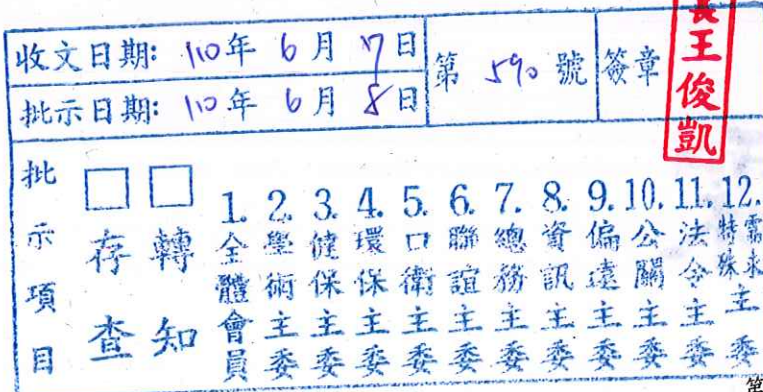 收文日期: 110年 6月 7日
批示日期: 110年 6月 8日
第 590 號
簽章
長王俊凱
批示項目
□存查
□轉知
1. 全體會員
2. 學術主委
3. 健保主委
4. 環保主委
5. 口衛主委
6. 聯誼主委
7. 總務主委
8. 資訊主委
9. 偏遠主委
10. 公關主委
11. 法令主委
12. 特殊需求主委
第